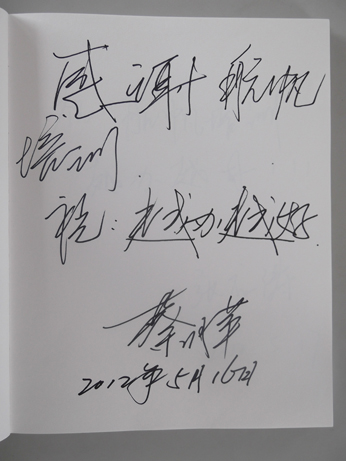 感谢千帆
培训.
祝:越办越好.
蔡 革
2012年5月16日